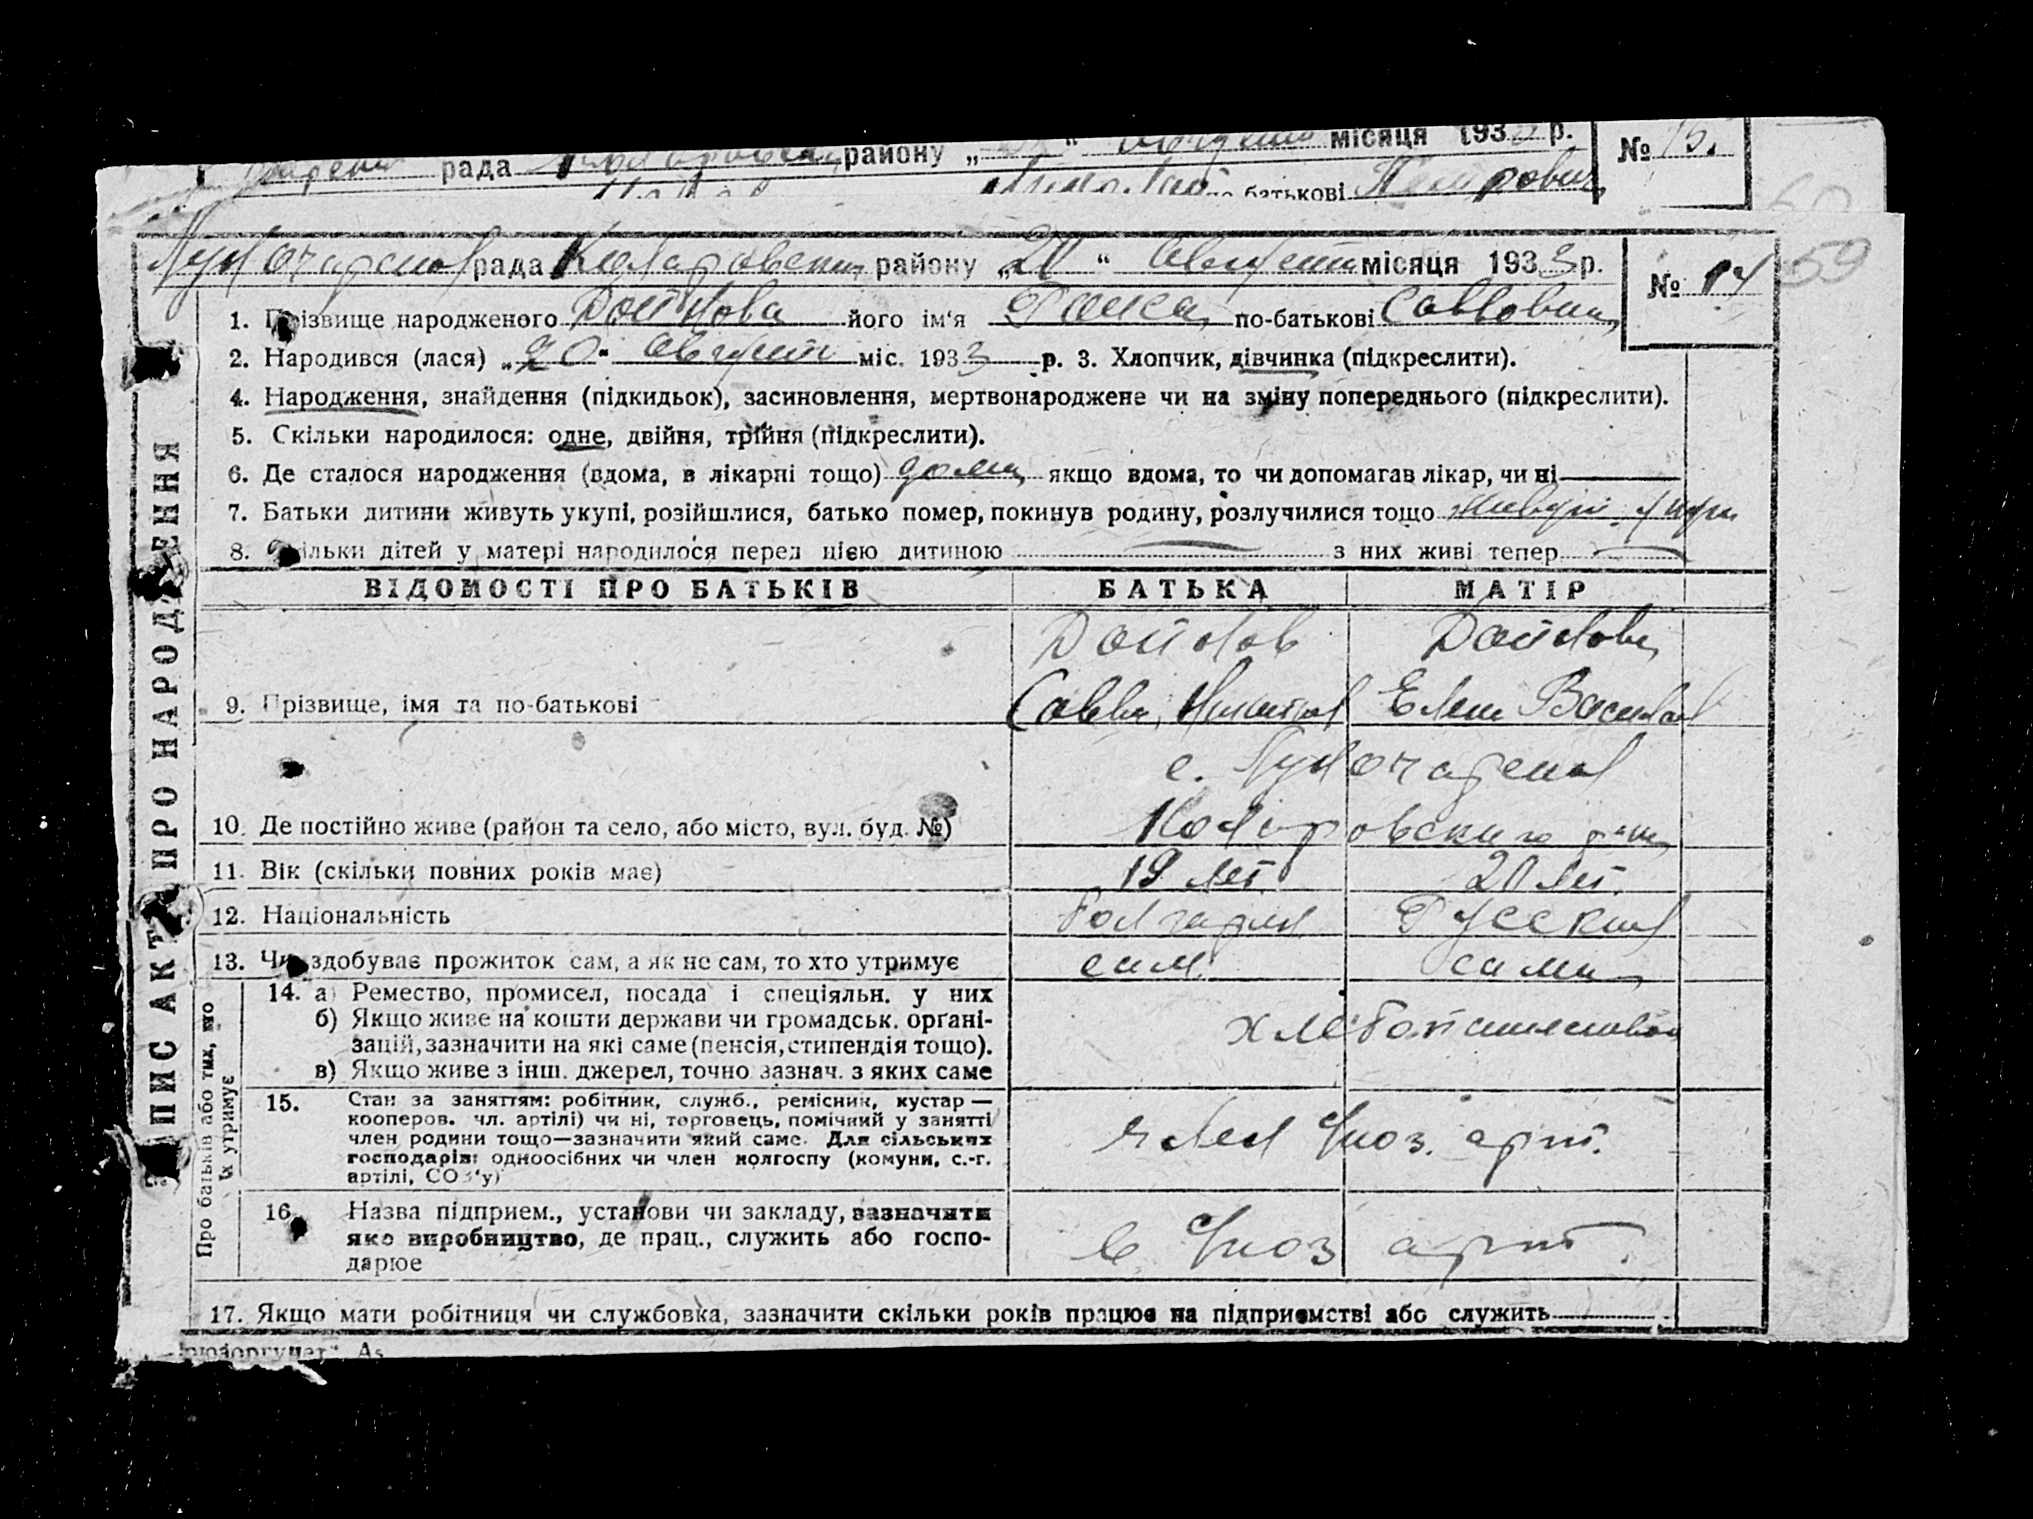 рада району „ “ місяця 193 р. № 15.
по батькові Петрович
60
рада Коларовськ району „20“ август місяця 1933 р. № 14 59
1. Прізвище народженого Дойнова його ім‘я Раиса по-батькові Саввовна
2. Народився (лася) „20“ август міс. 1933 р. 3. Хлопчик, дівчинка (підкреслити).
4. Народження, знайдення (підкидьок), засиновлення, мертвонароджене чи на зміну попереднього (підкреслити).
5. Скільки народилося: одне, двійня, трійня (підкреслити).
6. Де сталося народження (вдома, в лікарні тощо) дома якщо вдома, то чи допомагав лікар, чи ні
7. Батьки дитини живуть укупі, розійшлися, батько помер, покинув родину, розлучилися тощо живут
8. Скільки дітей у матері народилося перед цією дитиною — з них живі тепер —
ЗАПИС АКТ ПРО НАРОДЖЕННЯ
ВІДОМОСТІ ПРО БАТЬКІВ БАТЬКА МАТІР
Дойнов Дойнова
9. Прізвище, імя та по-батькові Савва Елена
с.
10. Де постійно живе (район та село, або місто, вул. буд. №) Коларовского
11. Вік (скільки повних років має) 19 лет. 20 лет.
12. Національність болгарин Русская
13. Чи здобуває прожиток сам, а як не сам, то хто утримує сам. сама
Про батьків або тих, що їх утримує
14. а) Ремество, промисел, посада і спеціяльн. у них
б) Якщо живе на кошти держави чи громадськ. орґані-
зацій, зазначити на які саме (пенсія, стипендія тощо).
в) Якщо живе з інш. джерел, точно зазнач. з яких саме
15. Стан за заняттям: робітник, служб., ремісник, кустар —
кооперов. чл. артілі) чи ні, торговець, помічний у занятті
член родини тощо—зазначити який саме. Для сільських
господарів: одноосібних чи член колгоспу (комуни, с.-г.
артілі, СОЗ‘у)
член арт.
16. Назва підприєм., установи чи закладу, зазначити
яко виробництво, де прац., служить або госпо-
дарює
в арт.
17. Якщо мати робітниця чи службовка, зазначити скільки років працює на підприємстві або служить